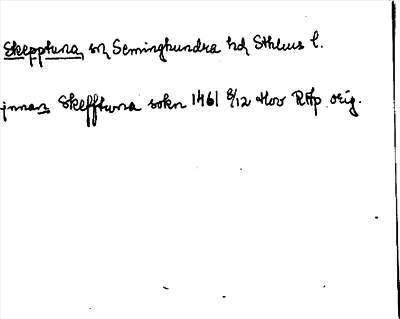 Skepptuna sn Seminghundra hd Sthlms l.
jnnan Skefftuna sokn 1461 8/12 Hov RAp orig.